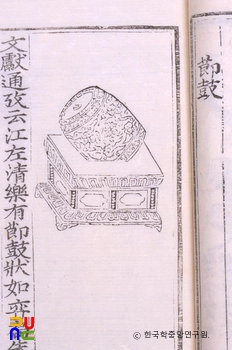 節鼓
文獻通攷云江左清樂有節鼓狀如弈
© 한국학중앙연구원